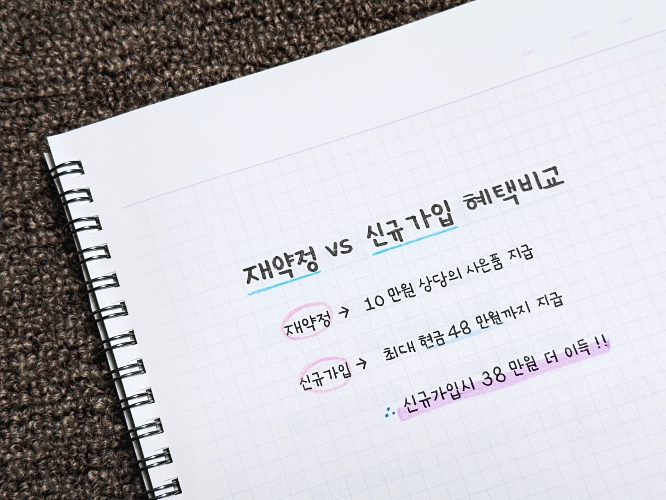 재약정 vs 신규가입 혜택비교
재약정 → 10만원 상당의 사은품 지급
신규가입 → 최대 현금 48만원까지 지급
∴ 신규가입시 38만원 더 이득!!